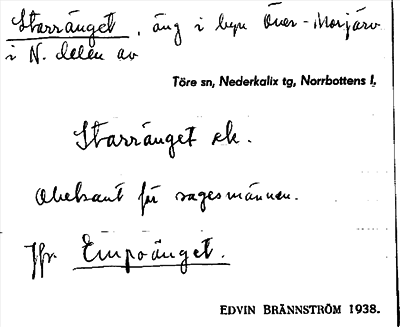 Starränget, äng i byn Över-Morjärv
i N. delen av
Töre sn, Nederkalix tg, Norrbottens l.
Starränget ek.
Obekant för sagesmännen.
Jfr Empoänget.
EDVIN BRÄNNSTRÖM 1938.